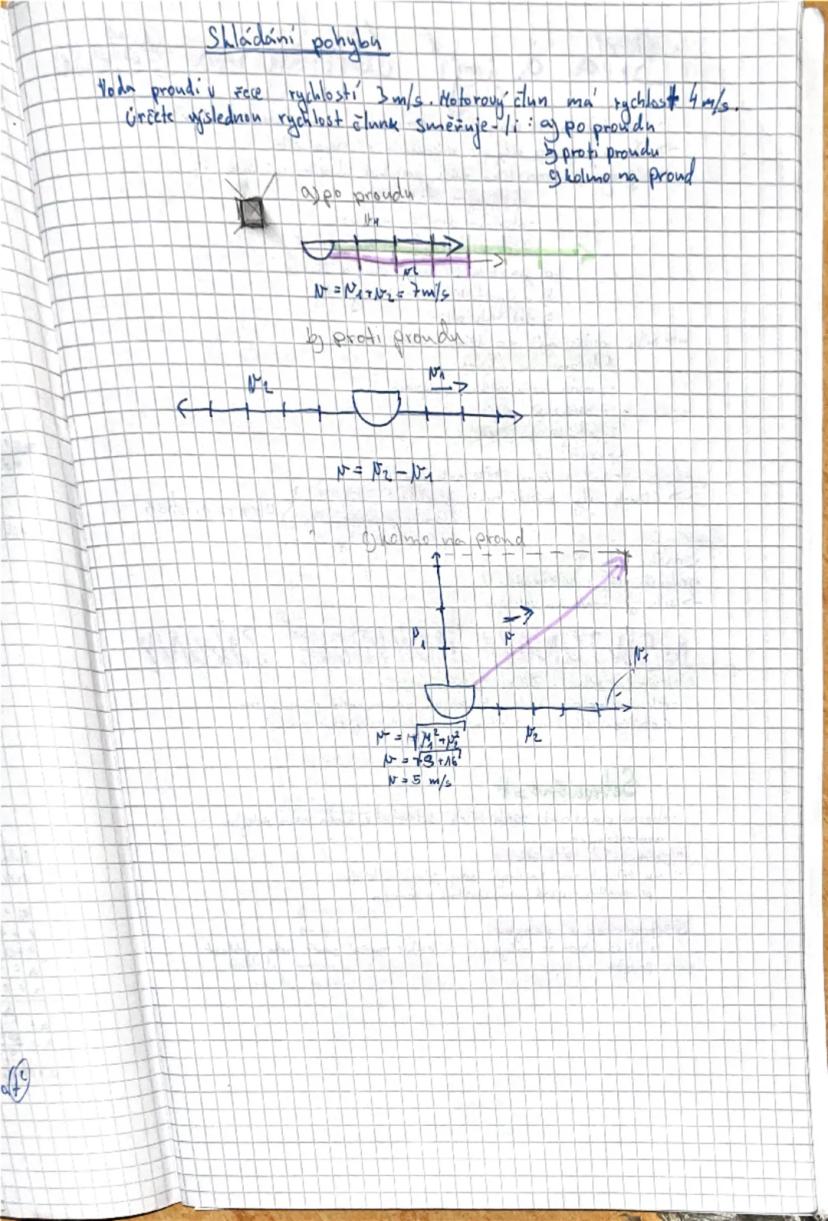 Skládání pohybu
Voda proudí v řece rychlostí 3 m/s. Motorový člun má rychlost 4 m/s.
Určete výslednou rychlost člunu směřuje-li : a) po proudu
b) proti proudu
c) kolmo na proud
a) po proudu
v₂
v = v₁ + v₂ = 7 m/s
b) proti proudu
v₂
v₁
v = v₂ - v₁
c) kolmo na proud
v
v₁
v₁
v₂
v = √v₁² + v₂²
v = √9 + 16
v = 5 m/s